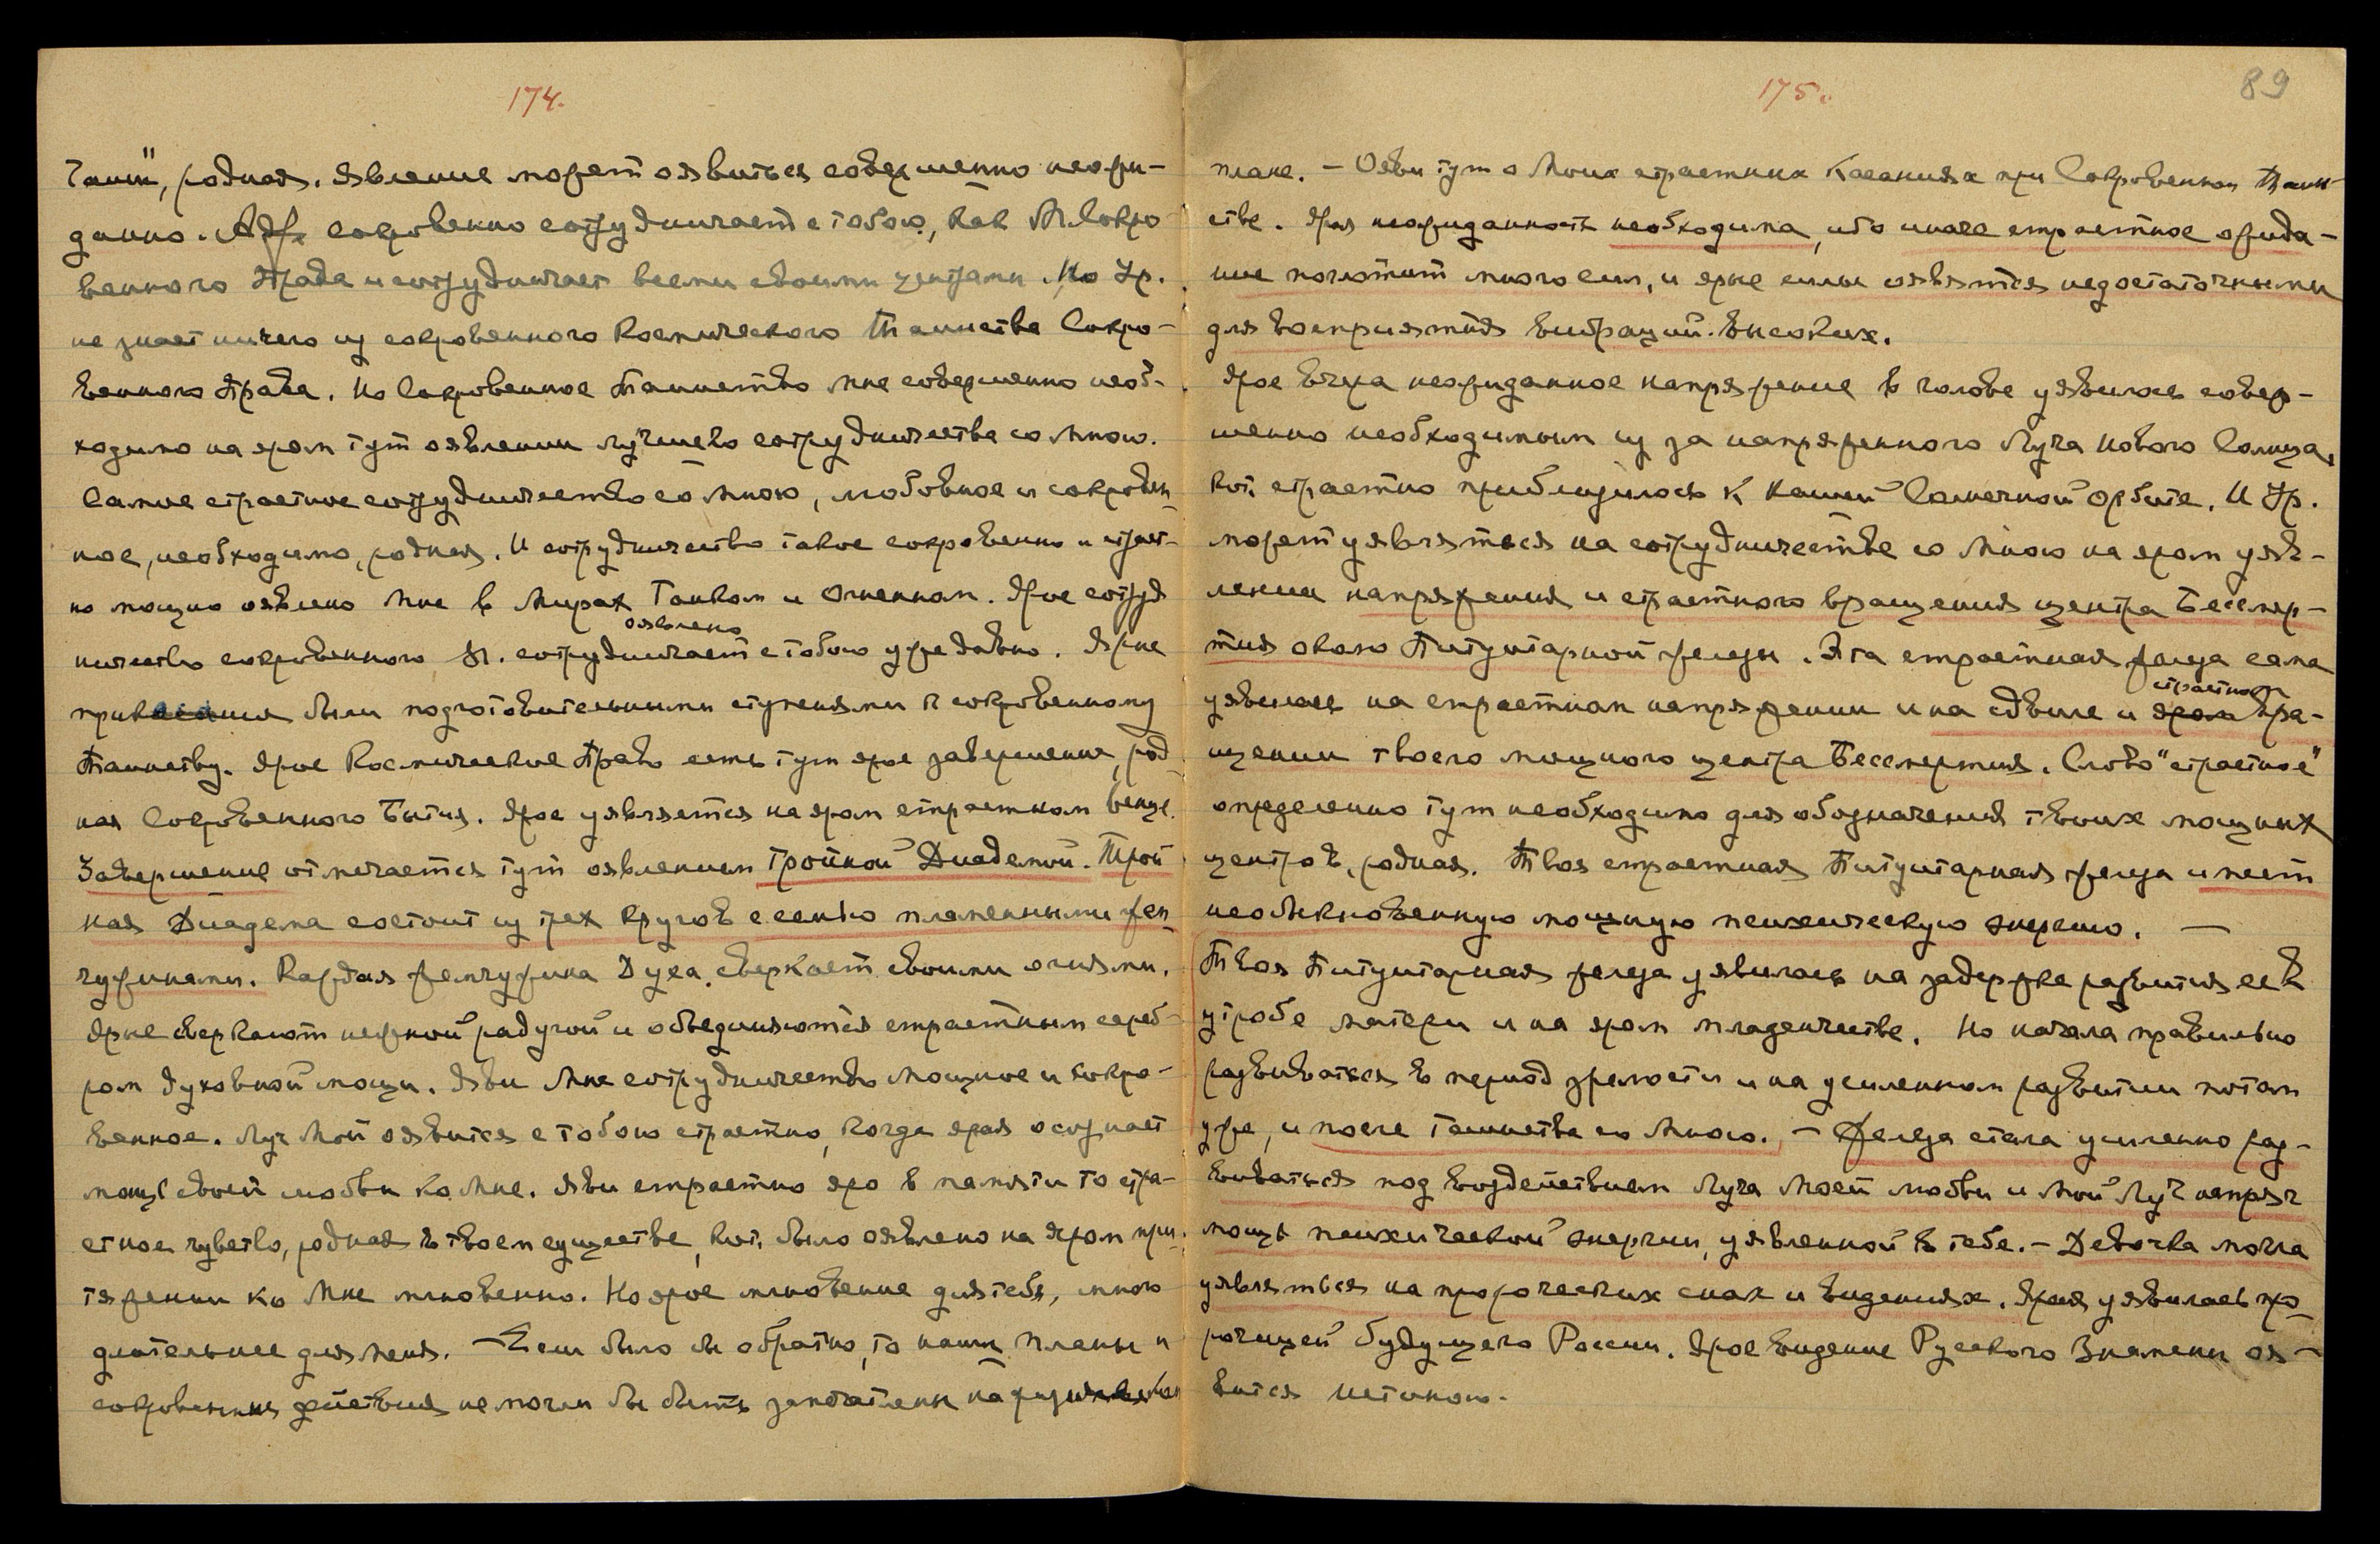 174.
Чаши", родная. Явление может оявиться совершенно неожи-
данно. сокровенно сотрудничает с тобою, как Вл. Сокро-
венного Права и сотрудничает всеми своими центрами. Но Ур.
не знает ничего из сокровенного Космического Таинства Сокро-
венного Права. Но Сокровенное Таинство Мне совершенно необ-
ходимо на яром тут оявлении лучшего сотрудничества со Мною.
Самое страстное сотрудничество со Мною, любовное и сокровен-
ное, необходимо, родная. И сотрудничество такое сокровенно и страст-
но мощно оявлено Мне в Мирах Тонком и Огненном. Ярое сотруд
оявлено
ничество сокровенного Вл. сотрудничает с тобою уже давно. Ярые
были подготовительными ступенями к сокровенному
Таинству. Ярое Космическое Право есть тут ярое завершение, род-
ная Сокровенного Бытия. Ярое уявляется на яром страстном венце.
Завершение отмечается тут оявлением Тройной Диадемой. Трой
ная Диадема состоит из трех кругов с семью пламенными жем-
чужинами. Каждая жемчужина Духа сверкает своими огнями.
Ярые сверкают нежной радугой и объединяются страстным сереб-
ром духовной мощи. Яви Мне сотрудничество мощное и сокро-
венное. Луч Мой оявится с тобою страстно, когда ярая осознает
мощь своей любви ко Мне. Яви страстно яро в памяти то стра-
стное чувство, родная в твоем существе, кот. было оявлено на яром при-
тяжении ко Мне мгновенно. Но ярое мгновение для тебя, много
длительнее для меня. – Если было бы обратно, то наши планы и
сокровенные действия не могли бы быть запечатлены на
175.
89
плане. – Ояви тут о Моих страстных Касаниях при Сокровенном Таин-
стве. Ярая неожиданность необходима, ибо иначе страстное ожида-
ние поглотит много сил, и ярые силы оявятся недостаточными
для восприятия вибраций высоких.
Ярое вчера неожиданное напряжение в голове уявилось совер-
шенно необходимым из за напряженного Луча Нового Солнца,
кот. страстно приблизилось к нашей Солнечной орбите. И Ур.
может уявляться на сотрудничестве со Мною на яром уяв-
лении напряжения и страстного вращения центра Бессмер-
тия около Питуитарной железы. Эта страстная железа сама
страстном
уявилась на страстном напряжении и на сдвиге и яром вра-
щении твоего мощного центра Бессмертия. Слово "страстное"
определенно тут необходимо для обозначения твоих мощных
центров, родная. Твоя страстная Питуитарная железа имеет
необыкновенную мощную психическую энергию. –
Твоя Питуитарная железа уявилась на задержке развития ее в
утробе матери и на яром младенчестве. Но начала правильно
развиваться в период зрелости и на усиленном развитии потом
уже, и после Таинства со Мною. – Железа стала усиленно раз-
виваться под воздействием Луча Моей любви и Мой Луч напряг
мощь психической энергии, уявленной в тебе. – Девочка могла
уявляться на пророческих снах и видениях. Ярая уявилась про-
рочицей будущего России. Ярое видение Русского Знамени оя-
вится истиною.